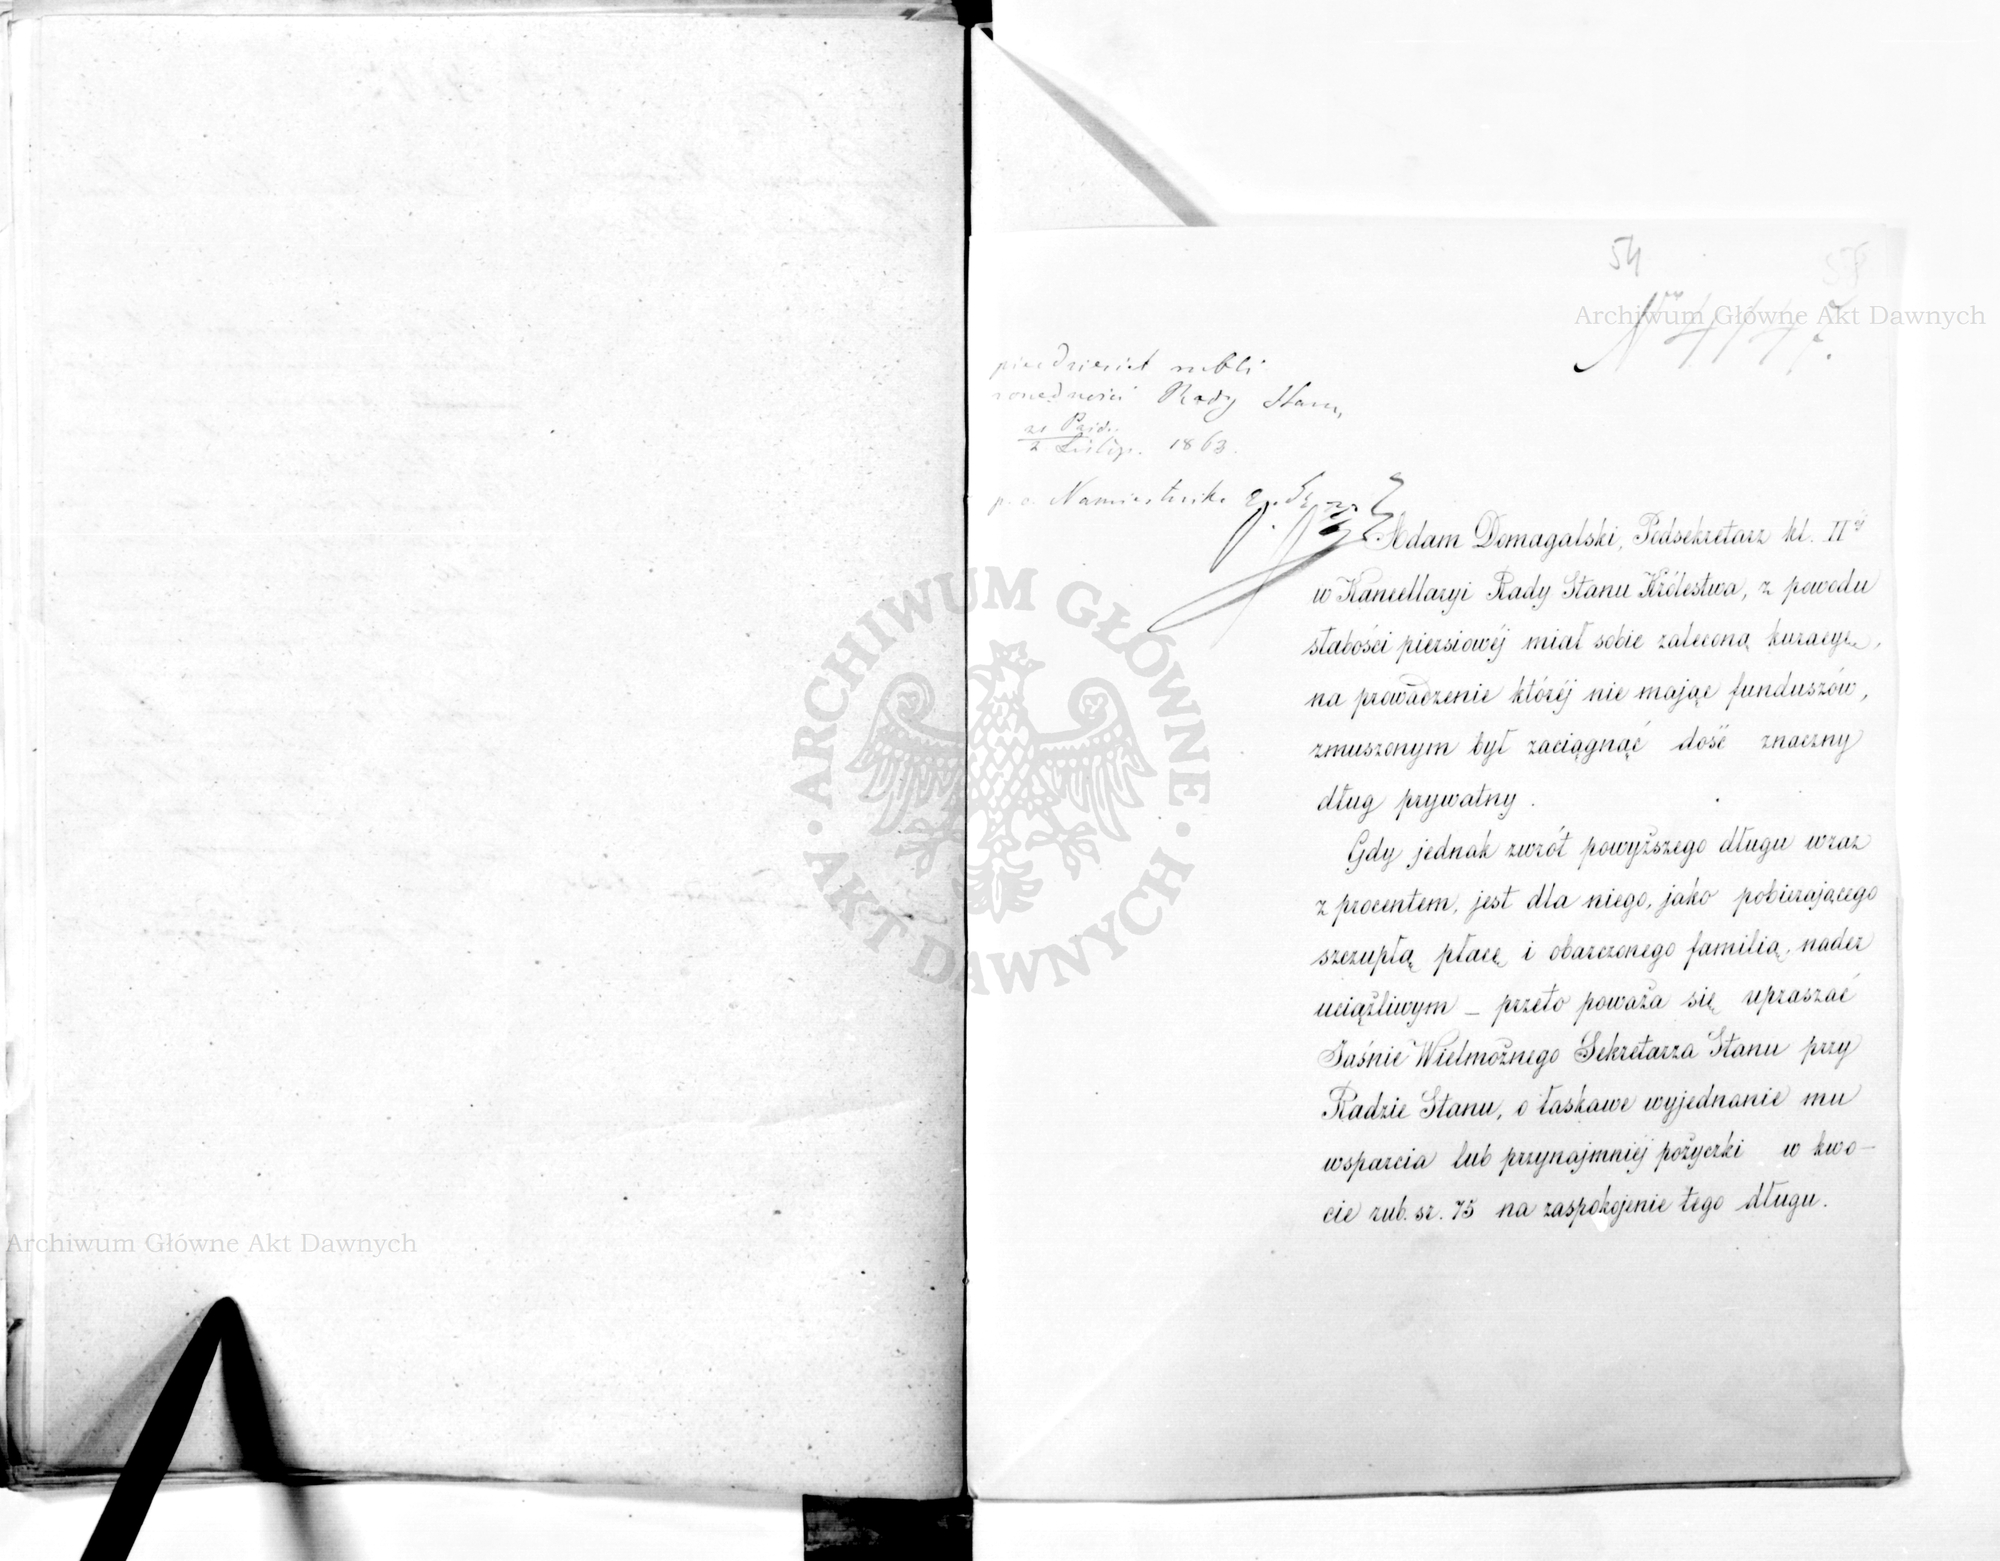 54
Archiwum Główne Akt Dawnych
pięćdziesiąt rubli
Rady Stanu,
21 Paźd.
2 Listop. 1863.
p. o. Namiestnika
Adam Domagalski, Podsekretarz kl. IIéj
w Kancellaryi Rady Stanu Królestwa, z powodu
słabości piersiowéj miał sobie zaleconą kuracyę,
na prowadzenie któréj nie mając funduszów,
zmuszonym był zaciągnąć dość znaczny
dług prywatny.
Gdy jednak zwrót powyższego długu wraz
z procentem, jest dla niego, jako pobierającego
szczupłą płacę i obarczonego familią, nader
uciążliwym – przeto poważa się upraszać
Jaśnie Wielmożnego Sekretarza Stanu przy
Radzie Stanu, o łaskawe wyjednanie mu
wsparcia lub przynajmniéj pożyczki w kwo-
cie rub. sr. 75 na zaspokojenie tego długu.
ARCHIWUM GŁÓWNE
AKT DAWNYCH
Archiwum Główne Akt Dawnych